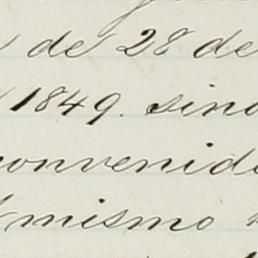 de 28 de
1849. sino
convenido
mismo